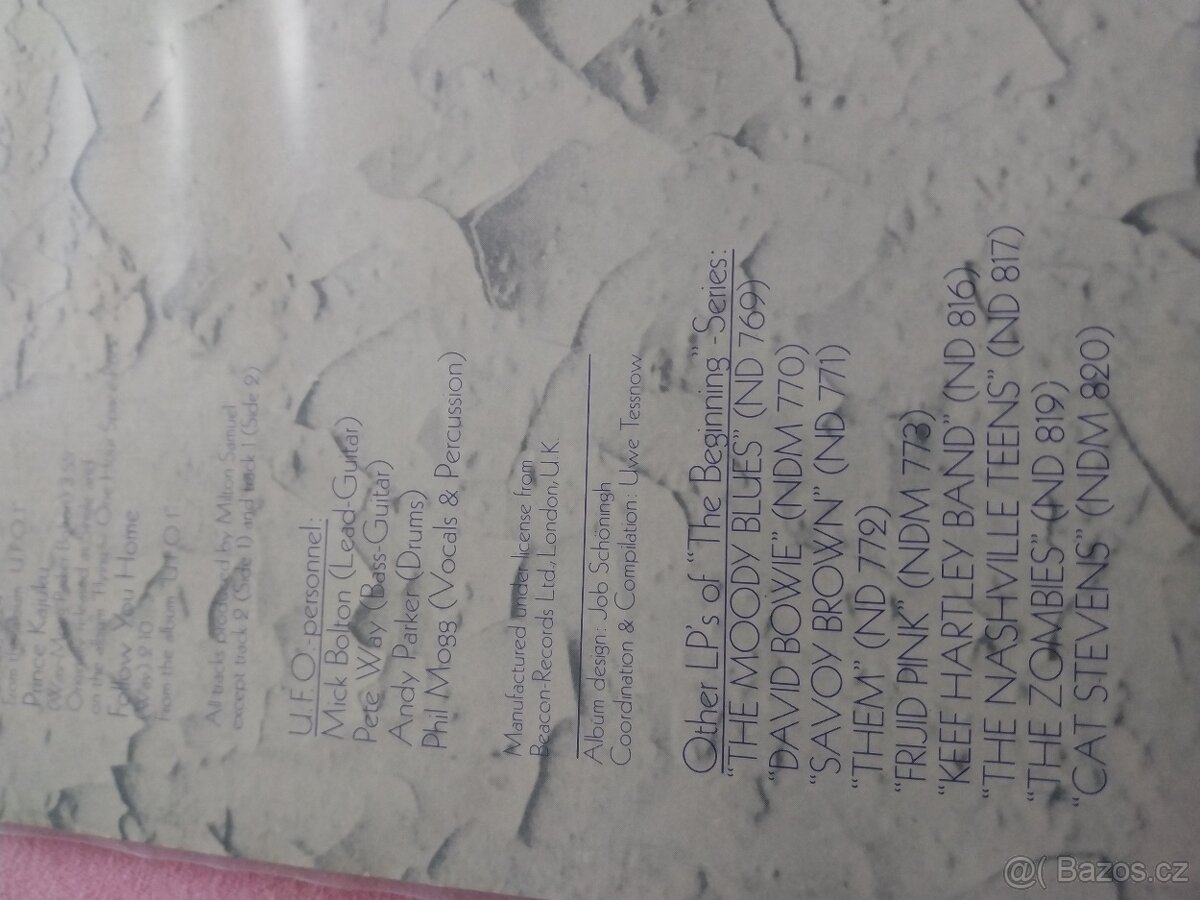 Prince Kajuku
Follow You Home
from the album U.F.O. 1
All tracks produced by Milton Samuel
except track 2 (Side 1) and track 1 (Side 2)
U.F.O.-personnel:
Mick Bolton (Lead-Guitar)
Pete Way (Bass-Guitar)
Andy Parker (Drums)
Phil Mogg (Vocals & Percussion)
Manufactured under license from
Beacon-Records Ltd., London, U.K.
Album design: Job Schöningh
Coordination & Compilation: Uwe Tessnow
Other LP's of "The Beginning"-Series:
"THE MOODY BLUES" (ND 769)
"DAVID BOWIE" (NDM 770)
"SAVOY BROWN" (ND 771)
"THEM" (ND 772)
"FRIJID PINK" (NDM 773)
"KEEF HARTLEY BAND" (ND 816)
"THE NASHVILLE TEENS" (ND 817)
"THE ZOMBIES" (ND 819)
"CAT STEVENS" (NDM 820)
@( Bazos.cz